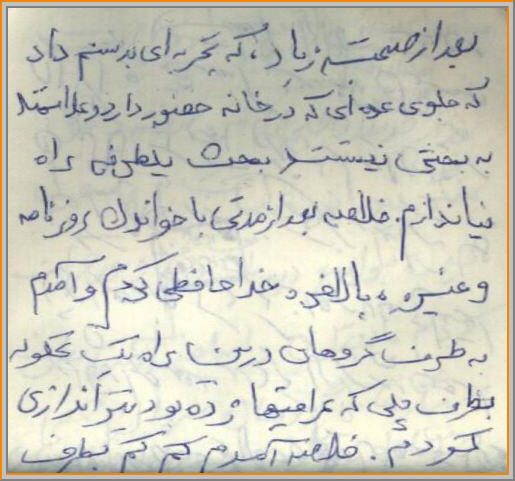 بعد از صحبت زیاد، که تجربه‌ای بدستم داد
که جلوی عده‌ای که در خانه حضور دارد و علاقمند
به بحثی نیستند بحث یکطرفه براه
نیاندازم. خلاصه بعد از مدتی با خواندن روزنامه
و غیره، بالاخره خداحافظی کردم و آمدم
به طرف گروهان در بین راه یک
بطرف پلی که عراقیها زده بود تیراندازی
کردم. خلاصه آمدم کم کم بطرف